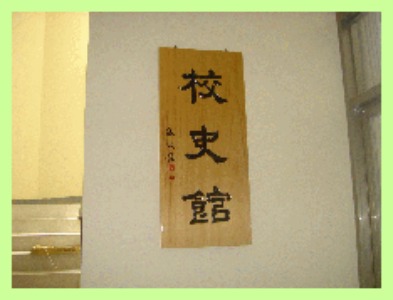 校史館